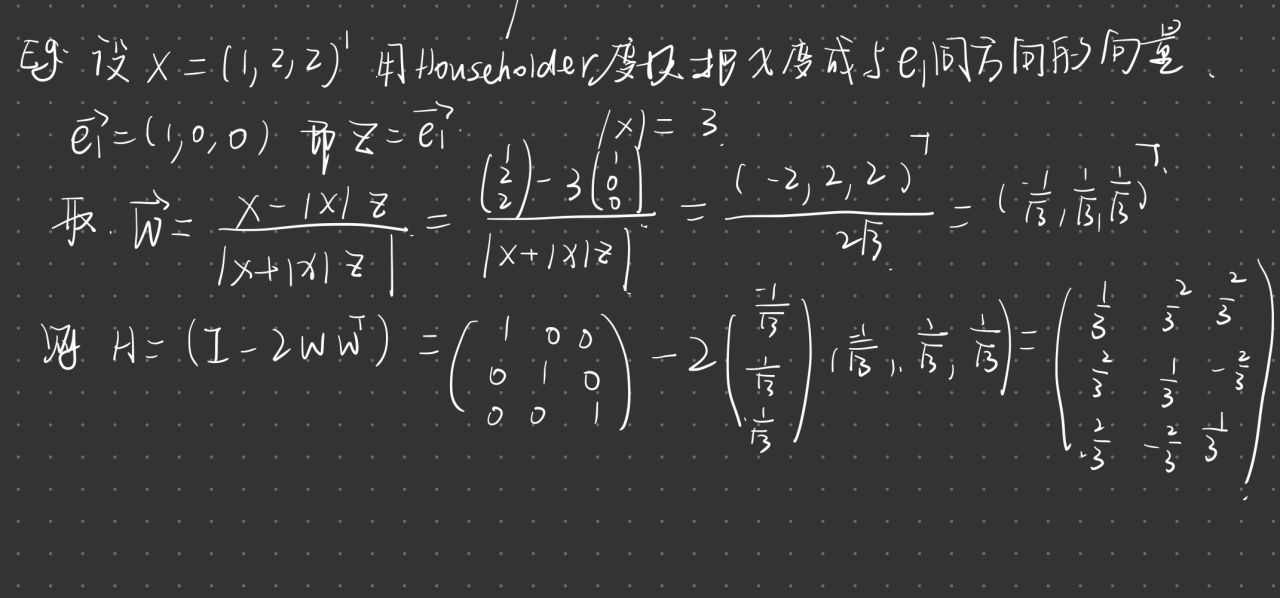 Eg. 设 x = (1, 2, 2)^T 用Householder变换把x变成与e₁同方向的向量.
\vec{e_1} = (1, 0, 0) 即 z = \vec{e_1}. |x| = 3.
取. \vec{w} = \frac{x - |x| z}{|x + |x| z|} = \frac{\begin{pmatrix} 1 \\ 2 \\ 2 \end{pmatrix} - 3 \begin{pmatrix} 1 \\ 0 \\ 0 \end{pmatrix}}{|x + |x| z|} = \frac{(-2, 2, 2)^T}{2\sqrt{3}} = (\frac{-1}{\sqrt{3}}, \frac{1}{\sqrt{3}}, \frac{1}{\sqrt{3}})^T.
则 H = (I - 2ww^T) = \begin{pmatrix} 1 & 0 & 0 \\ 0 & 1 & 0 \\ 0 & 0 & 1 \end{pmatrix} - 2 \begin{pmatrix} \frac{-1}{\sqrt{3}} \\ \frac{1}{\sqrt{3}} \\ \frac{1}{\sqrt{3}} \end{pmatrix} (\frac{-1}{\sqrt{3}}, \frac{1}{\sqrt{3}}, \frac{1}{\sqrt{3}}) = \begin{pmatrix} \frac{1}{3} & \frac{2}{3} & \frac{2}{3} \\ \frac{2}{3} & \frac{1}{3} & -\frac{2}{3} \\ \frac{2}{3} & -\frac{2}{3} & \frac{1}{3} \end{pmatrix}.